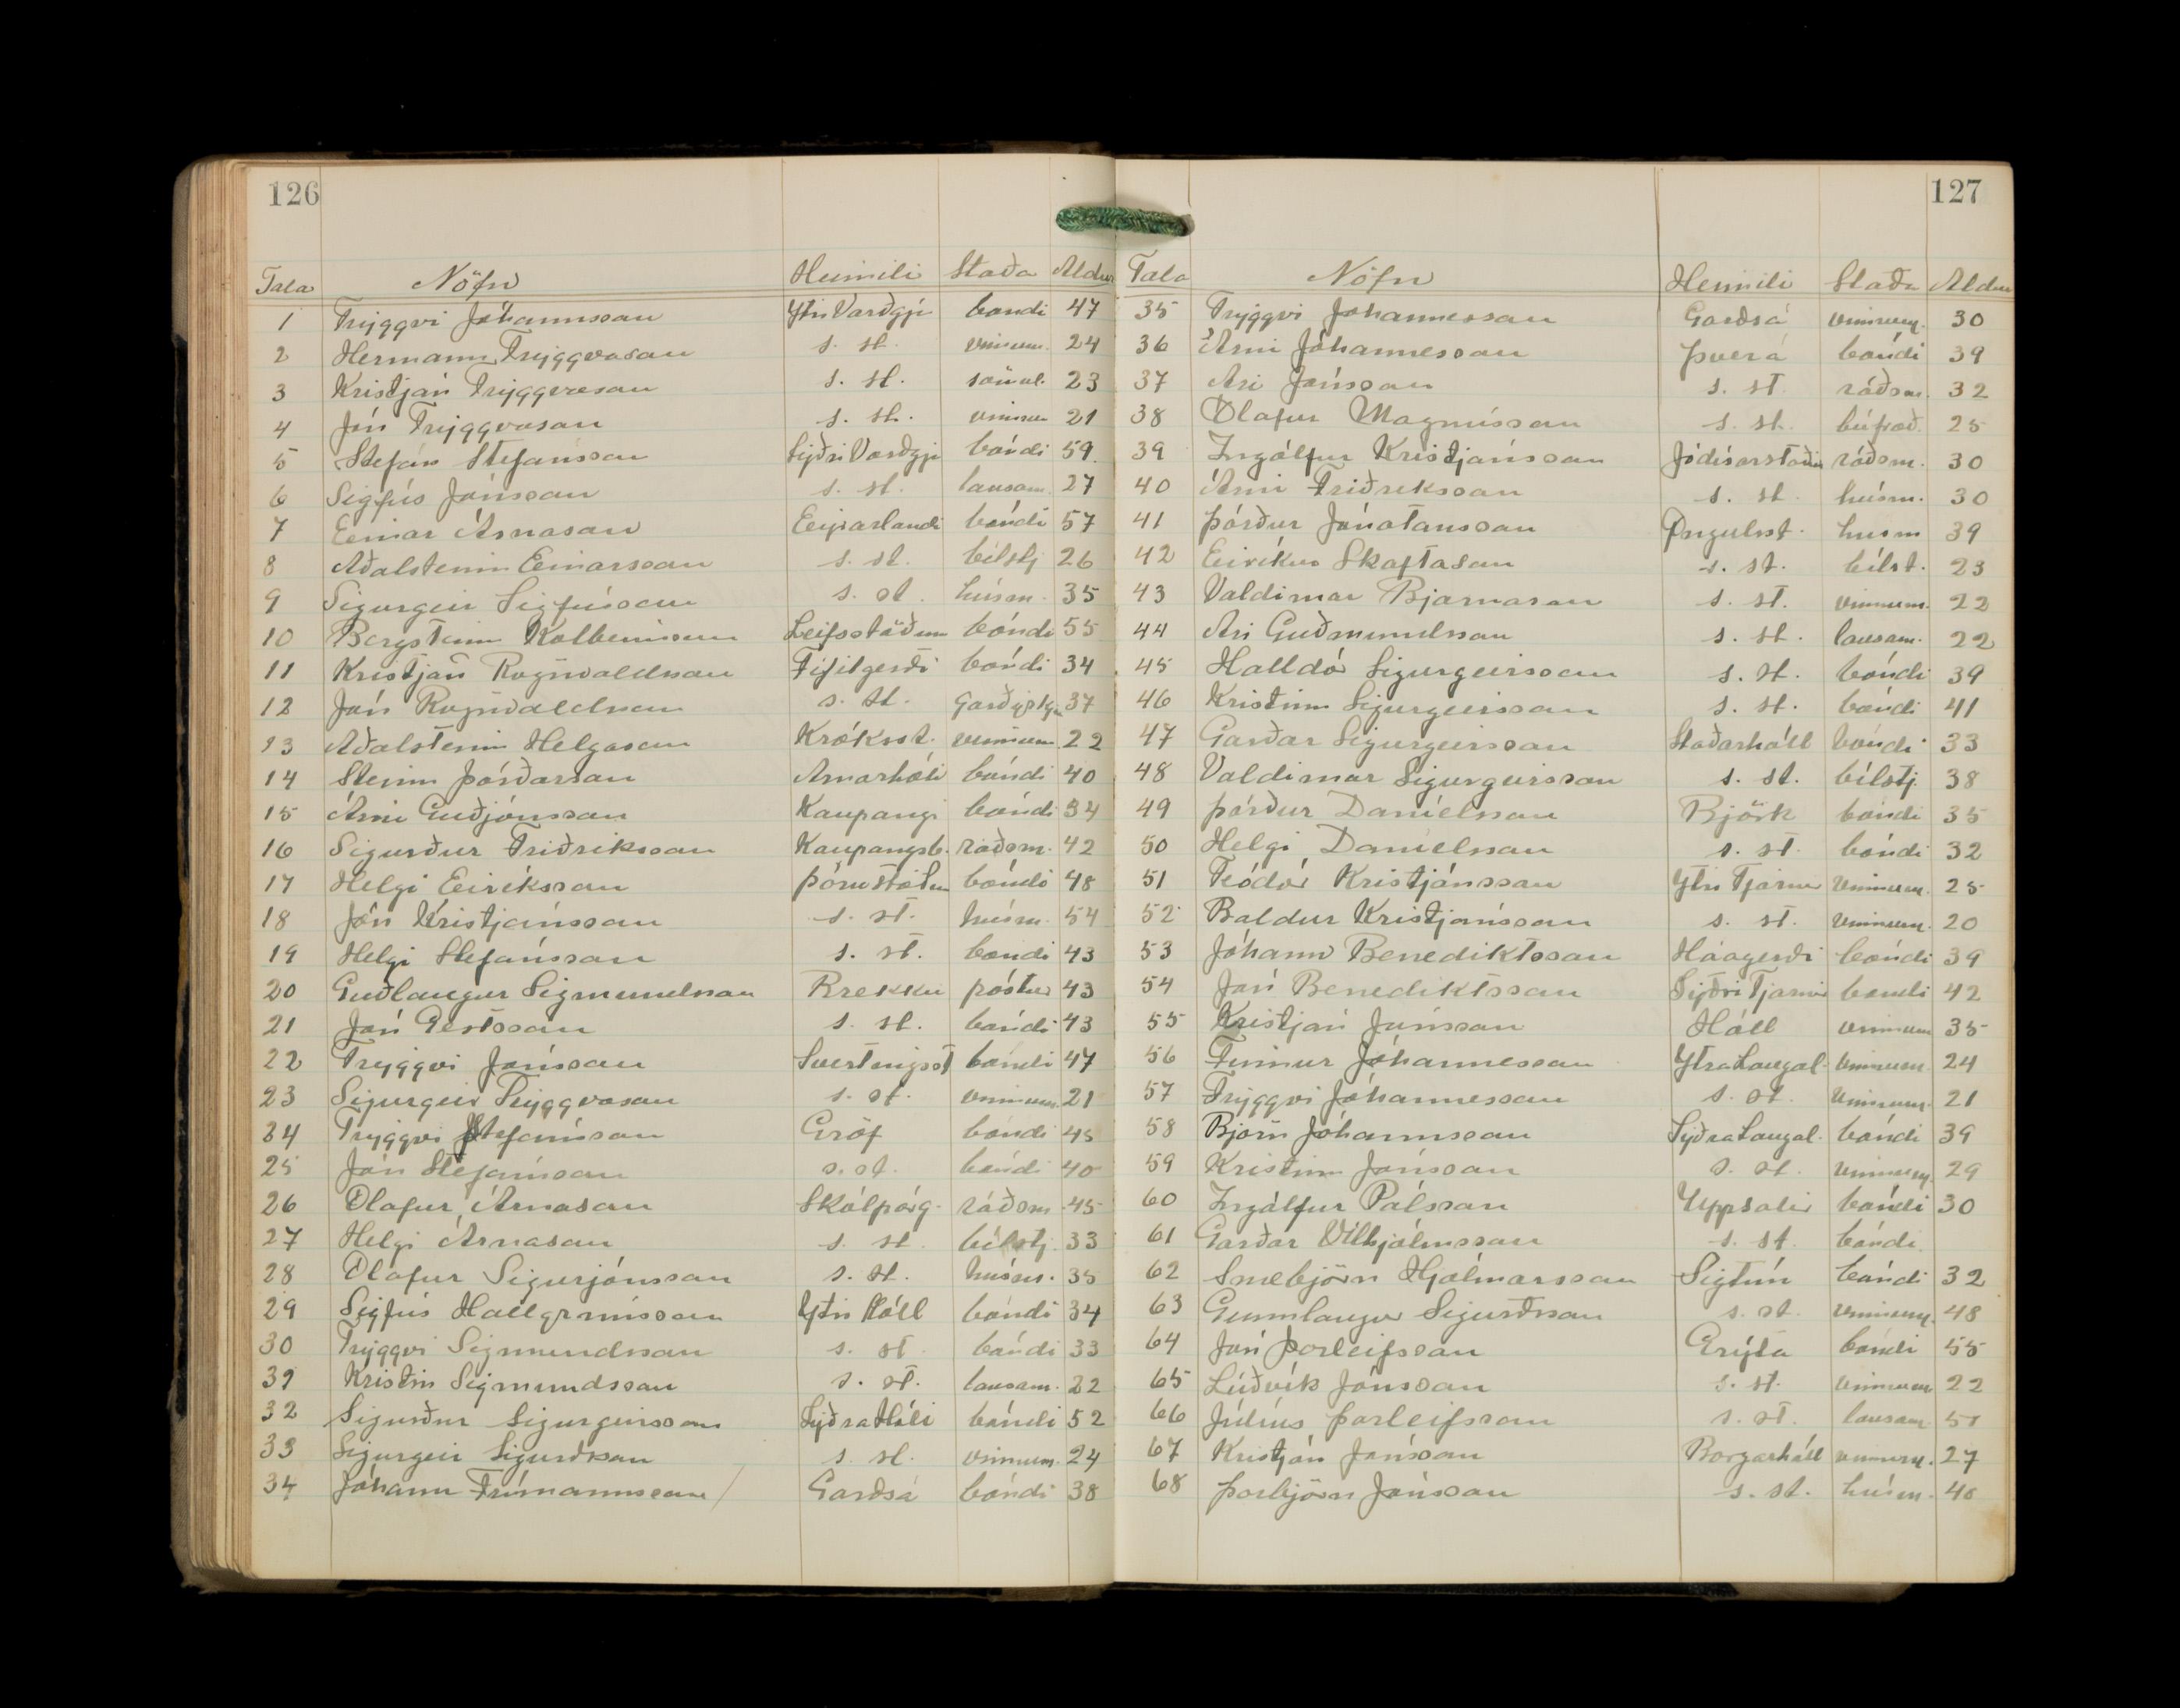 126
Tala Nöfn Heimili Staða Aldur
1 Tryggvi Jóhannsson Ytri Varðgjá bóndi 47
2 Hermann Tryggvason s. st. vinnum. 24
3 Kristján Tryggvason s. st. 23
4 Jón Tryggvason s. st. vinnum 21
5 Stefán Stefánsson Syðri Varðgjá bóndi 59
6 Sigfús Jónsson s. st. lausam. 27
7 Einar Árnason Eyrarlandi bóndi 57
8 Aðalsteinn Einarsson s. st. bílstj 26
9 Sigurgeir Sigfússon s. st. húsm. 35
10 Bergsteinn Kolbeinsson Leifsstöðum bóndi 55
11 Kristján Rögnvaldsson Fífilgerði bóndi 34
12 Jón Rögnvaldsson s. st. 37
13 Aðalsteinn Helgason Króksst. vinnum. 22
14 Steinn Þórðarson Arnarhóli bóndi 40
15 Árni Guðjónsson Kaupangi bóndi 34
16 Sigurður Friðriksson Kaupangsb. ráðsm. 42
17 Helgi Eiríksson Þórustöðum bóndi 48
18 Jón Kristjánsson s. st. húsm. 54
19 Helgi Stefánsson s. st. bóndi 43
20 Guðlaugur Sigmundsson Brekku póstur 43
21 Jón Gestsson s. st. bóndi 43
22 Tryggvi Jónsson Svertingsst bóndi 47
23 Sigurgeir Tryggvason s. st. vinnum. 21
24 Tryggvi Stefánsson Gröf bóndi 45
25 Jón Stefánsson s. st. bóndi 40
26 Ólafur Árnason Skálpag. ráðsm 45
27 Helgi Árnason s. st. bílstj. 33
28 Ólafur Sigurjónsson s. st. húsm. 35
29 Sigfús Hallgrímsson Ytri Hóll bóndi 34
30 Tryggvi Sigmundsson s. st. bóndi 33
31 Kristin Sigmundsson s. st. lausam. 22
32 Sigurður Sigurgeirsson Syðra Hóli bóndi 52
33 Sigurgeir Sigurðsson s. st. vinnum. 24
34 Jóhann Frímannsson Garðsá bóndi 38
127
Tala Nöfn Heimili Staða Aldur
35 Tryggvi Jóhannesson Garðsá vinnum. 30
36 Árni Jóhannesson Þverá bóndi 39
37 Ari Jónsson s. st. ráðsm. 32
38 Ólafur Magnússon s. st. búfræð. 25
39 Ingólfur Kristjánsson Jódísarstaðir ráðsm. 30
40 Árni Friðreksson s. st. húsm. 30
41 Þórður Jónatansson Öngulsst. húsm 39
42 Eiríkur Skaftason s. st. bílst. 23
43 Valdimar Bjarnason s. st. vinnum. 22
44 Ari Guðmundsson s. st. lausam. 22
45 Halldór Sigurgeirsson s. st. bóndi 39
46 Kristinn Sigurgeirsson s. st. bóndi 41
47 Garðar Sigurgeirsson Staðarhóll bóndi 33
48 Valdimar Sigurgeirsson s. st. bílstj. 38
49 Þórður Daníelsson Björk bóndi 35
50 Helgi Daníelsson s. st. bóndi 32
51 Teódór Kristjánsson Ytri Tjarnir vinnum. 25
52 Baldur Kristjánsson s. st. vinnum. 20
53 Jóhann Benediktsson Háagerði bóndi 39
54 Jón Benediktsson Syðri Tjarnir bóndi 42
55 Kristján Jónsson Hóll vinnum 35
56 Finnur Jóhannesson Ytra Laugal. vinnum. 24
57 Tryggvi Jóhannesson s. st. vinnum. 21
58 Björn Jóhannsson Syðra Laugal. bóndi 39
59 Kristinn Jónsson s. st. vinnum. 29
60 Ingólfur Pálsson Uppsalir bóndi 30
61 Garðar Vilhjálmsson s. st. bóndi
62 Snæbjörn Hjálmarsson Sigtún bóndi 32
63 Gunnlaugur Sigurðsson s. st. vinnum. 48
64 Jón Þorleifsson Grýta bóndi 55
65 Lúðvík Jónsson s. st. vinnum 22
66 Júlíus Þorleifsson s. st. lausam. 51
67 Kristján Jónsson Borgarhóll vinnum. 27
68 Þorbjörn Jónsson s. st. húsm. 46